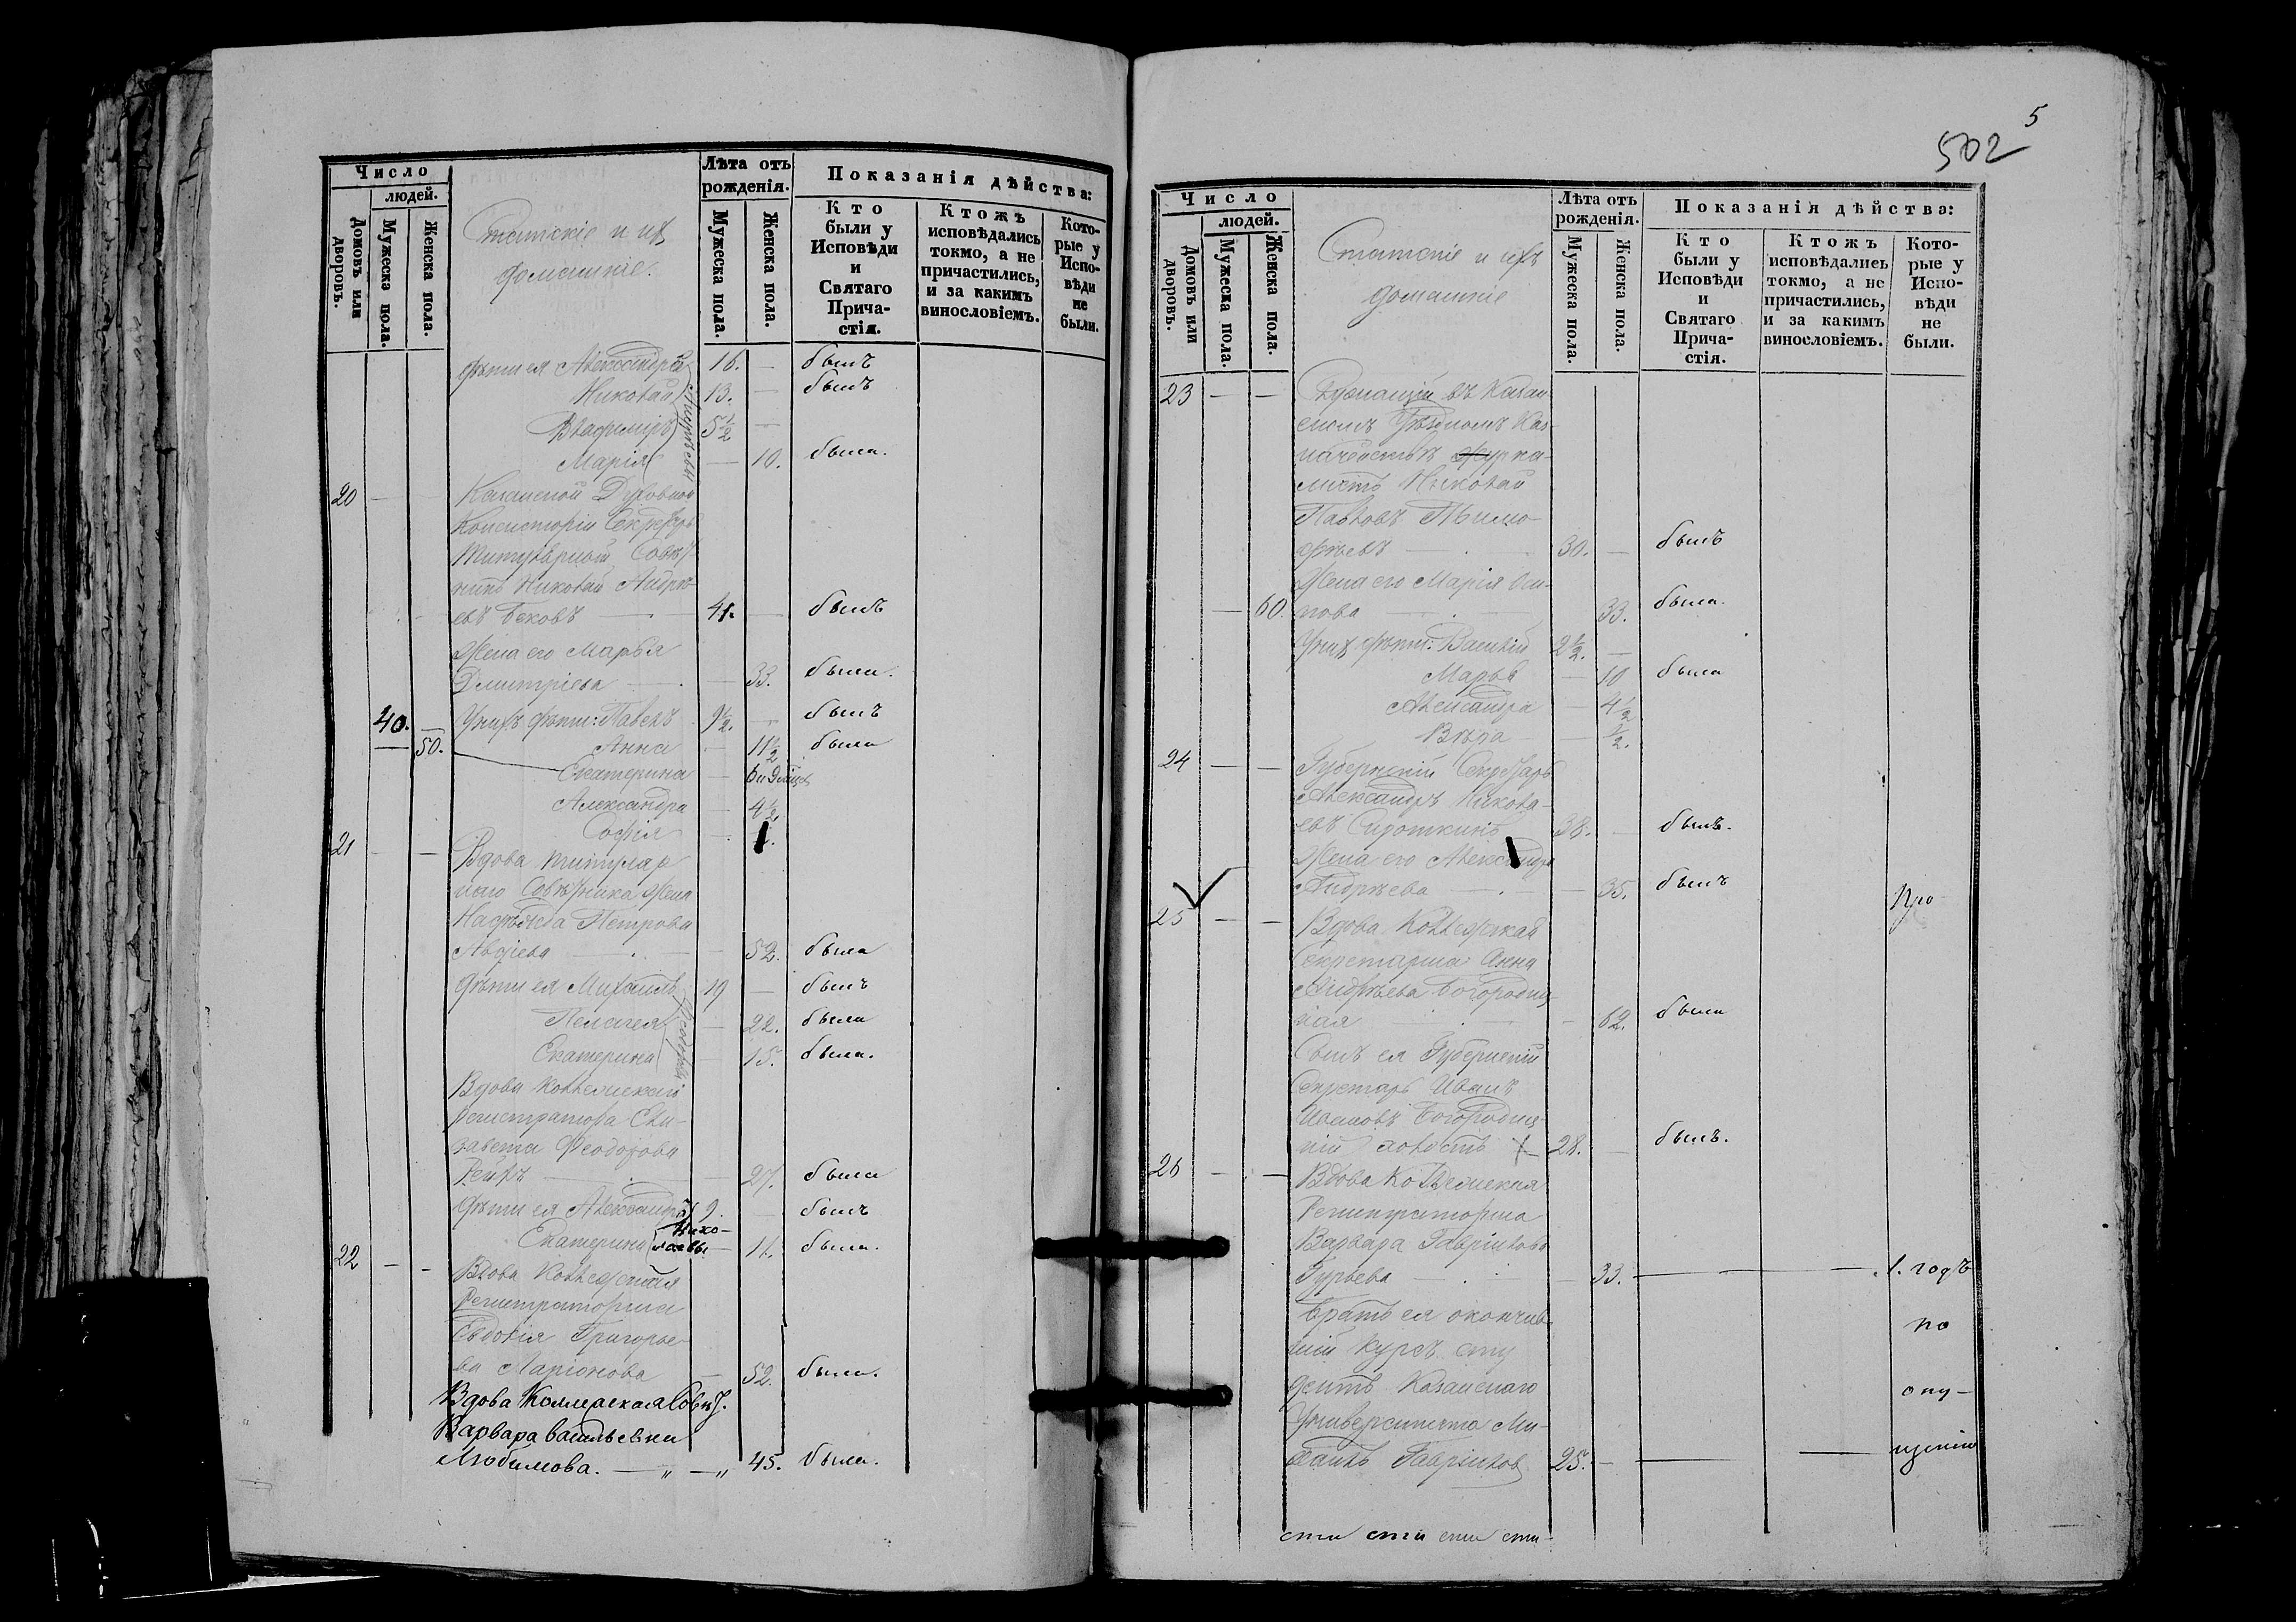 Число
людей.
Домовъ или дворовъ.
Мужеска пола.
Женска пола.
Статскіе и ихъ
домашніе.
Лѣта отъ
рожденія.
Мужеска пола.
Женска пола.
Показанія дѣйства:
Кто
были у
Исповѣди
и
Святаго
Прича-
стія.
Ктожъ
исповѣдались
токмо, а не
причастились,
и за какимъ
винословіемъ.
Кото-
рые у
Испо-
вѣди
не
были.
дѣти ея Александръ 16. — былъ
Николай 13. — былъ
Владиміръ 5 1/2 —
Марія — 10. была.
20 — Казанской Духовной
Консисторіи Секретарь
Титулярный Совѣт-
никъ Николай Андре-
евъ Бековъ — 41. — былъ
Жена его Марья
Димитріева — — 33. была.
40. — У нихъ дѣти: Павелъ 9 1/2. — былъ
— 50. Анна — 11 1/2 была
Екатерина — 6 и 9 мѣсяц
Александра — 4 1/2
Софія — 1.
21 — — Вдова титуляр
наго Совѣтника жена
Надѣжда Петрова
Авдіева — — 52. была
дѣти ея Михаилъ 19 — былъ
Пелагея — 22. была
Екатерина — 15. была.
Вдова Коллежскаго
регистратора Ели-
завета Феодорова
Рейхъ — — 27. была
дѣти ея Александръ 9. — былъ
Нико-
Екатерина лаевы — 11. была.
22 — — Вдова Коллежская
Регистраторша
Евдокія Григорье-
ва Ларіонова — 52. была.
Вдова Коллежская Совѣт.
Варвара Васильевна
Любимова. — „ — „ 45. была.
5
502
Число
людей.
Домовъ или дворовъ.
Мужеска пола.
Женска пола.
Статскіе и ихъ
домашніе
Лѣта отъ
рожденія.
Мужеска пола.
Женска пола.
Показанія дѣйства:
Кто
были у
Исповѣди
и
Святаго
Прича-
стія.
Ктожъ
исповѣдались
токмо, а не
причастились,
и за какимъ
винословіемъ.
Кото-
рые у
Испо-
вѣди
не
были.
23 — — Служащій въ Казан
скомъ Уѣздномъ Каз-
начействѣ
Николай
Павловъ Тимо-
фѣевъ — 30. — былъ
Жена его Марія Оси-
— 60. пова — 33. была.
У нихъ дѣти: Василій 2 1/2. —
Марья — 10 была
Александра — 4 1/2
Вѣра — 1/2.
24 — — Губернскій Секретарь
Александръ Никола-
евъ Сироткинъ 38. — былъ.
Жена его Александра
Андреева — — 35. былъ
Про-
25 — — Вдова Коллежская
Секретарша Анна
Андреева Богородиц-
кая — — 62. была
Сынъ ея Губернскій
Секретарь Иванъ
Ивановъ Богородиц-
кій холостъ 28. — былъ.
26 — — Вдова Коллежская
Регистраторша
Варвара Гаврилова
Гурьева — — 33. — — 1. годъ
Братъ ея окончив-
по
шій курсъ сту
дентъ Казанскаго опу-
Университета Ми-
хаилъ Гавриловъ 25. — — — щенію
сти сти сти сти-